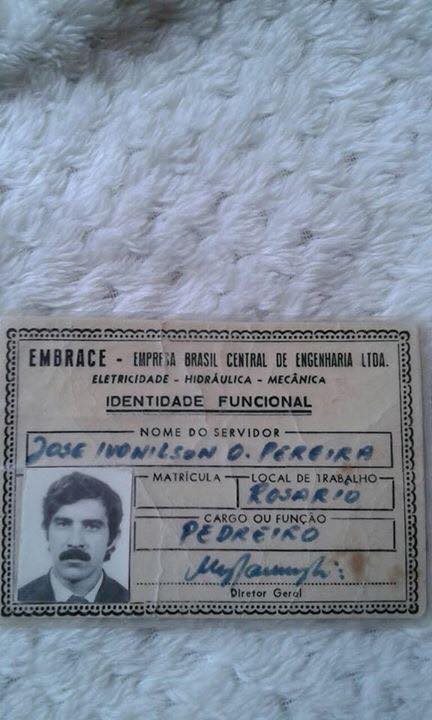 EMBRACE - EMPRESA BRASIL CENTRAL DE ENGENHARIA LTDA.
ELETRICIDADE - HIDRÁULICA - MECÂNICA
IDENTIDADE FUNCIONAL
NOME DO SERVIDOR
JOSE IVONILSON D. PEREIRA
MATRÍCULA
LOCAL DE TRABALHO
ROSARIO
CARGO OU FUNÇÃO
PEDREIRO
Diretor Geral